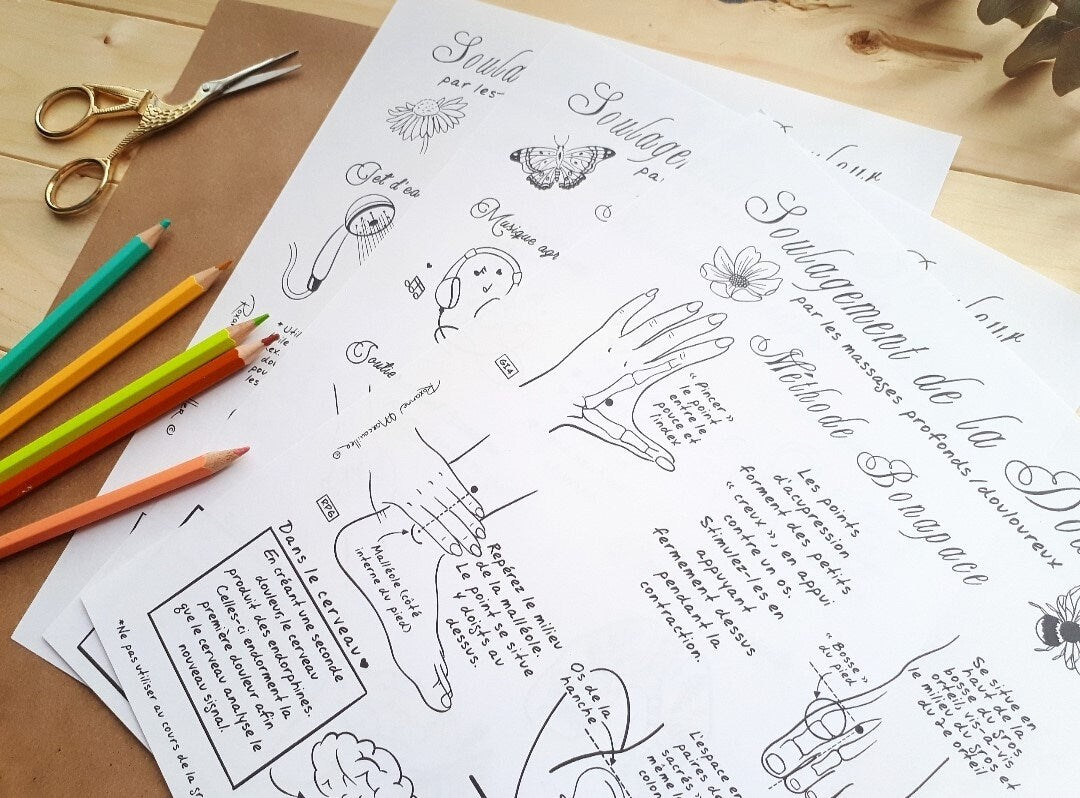 Soula
par les
Jet d'ea
Soulagem
pa
Musique agr
Toutre
Soulagement de la Do
par les massages profonds / douloureux
Méthode Bonapace
Les points
d'acupression
forment des petits
« creux », en appui
contre un os.
Stimulez-les en
appuyant
fermement dessus
pendant la
contraction.
GI4
« Pincer »
le point
entre le
pouce et
l'index
Roxanne
RP6
Malléole (côté
interne du pied)
Repérez le milieu
de la malléole.
Le point se situe
4 doigts au
dessus.
Dans le cerveau
En créant une seconde
douleur, le cerveau
produit des endorphines.
Celles-ci endorment la
première douleur afin
que le cerveau analyse le
nouveau signal.
*Ne pas utiliser au cours de la gr
Os de la
hanche
L'espace en
paires de
sacrés
même l
colon
« Bosse »
du pied
Se situe en
haut de la
bosse du gros
orteil, vis-à-vis
le milieu du gros et
du 2e orteil